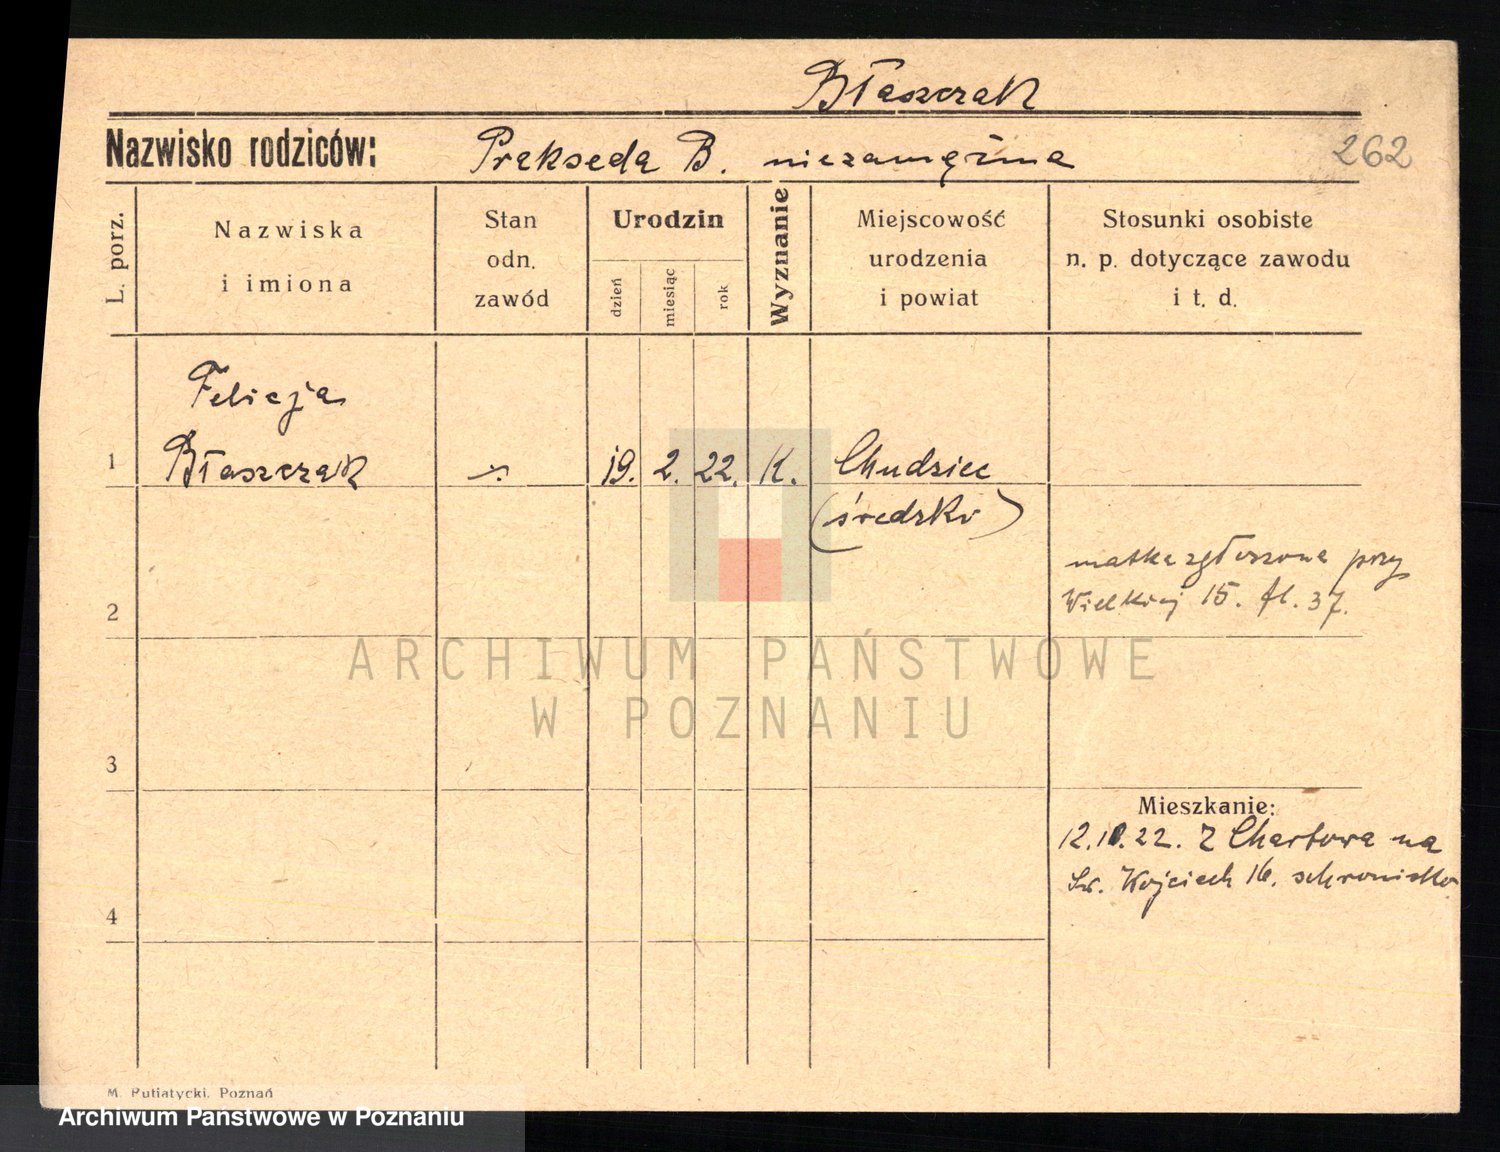 Błaszczak
Nazwisko rodziców: Prakseda B. niezamężna
262
L. porz.
Nazwiska
i imiona
Stan
odn.
zawód
Urodzin
dzień
miesiąc
rok
Wyznanie
Miejscowość
urodzenia
i powiat
Stosunki osobiste
n. p. dotyczące zawodu
i t. d.
Felicja
1 Błaszczak -:- 19. 2. 22. K. Chudziec
(średzko)
matka zgłoszona przy
2 Wielkiej 15. fl. 37.
ARCHIWUM PAŃSTWOWE
W POZNANIU
3
Mieszkanie:
12.10.22. Z Chartowa na
Św. Wojciech 16. schronisko
4
M. Putiatycki, Poznań
Archiwum Państwowe w Poznaniu